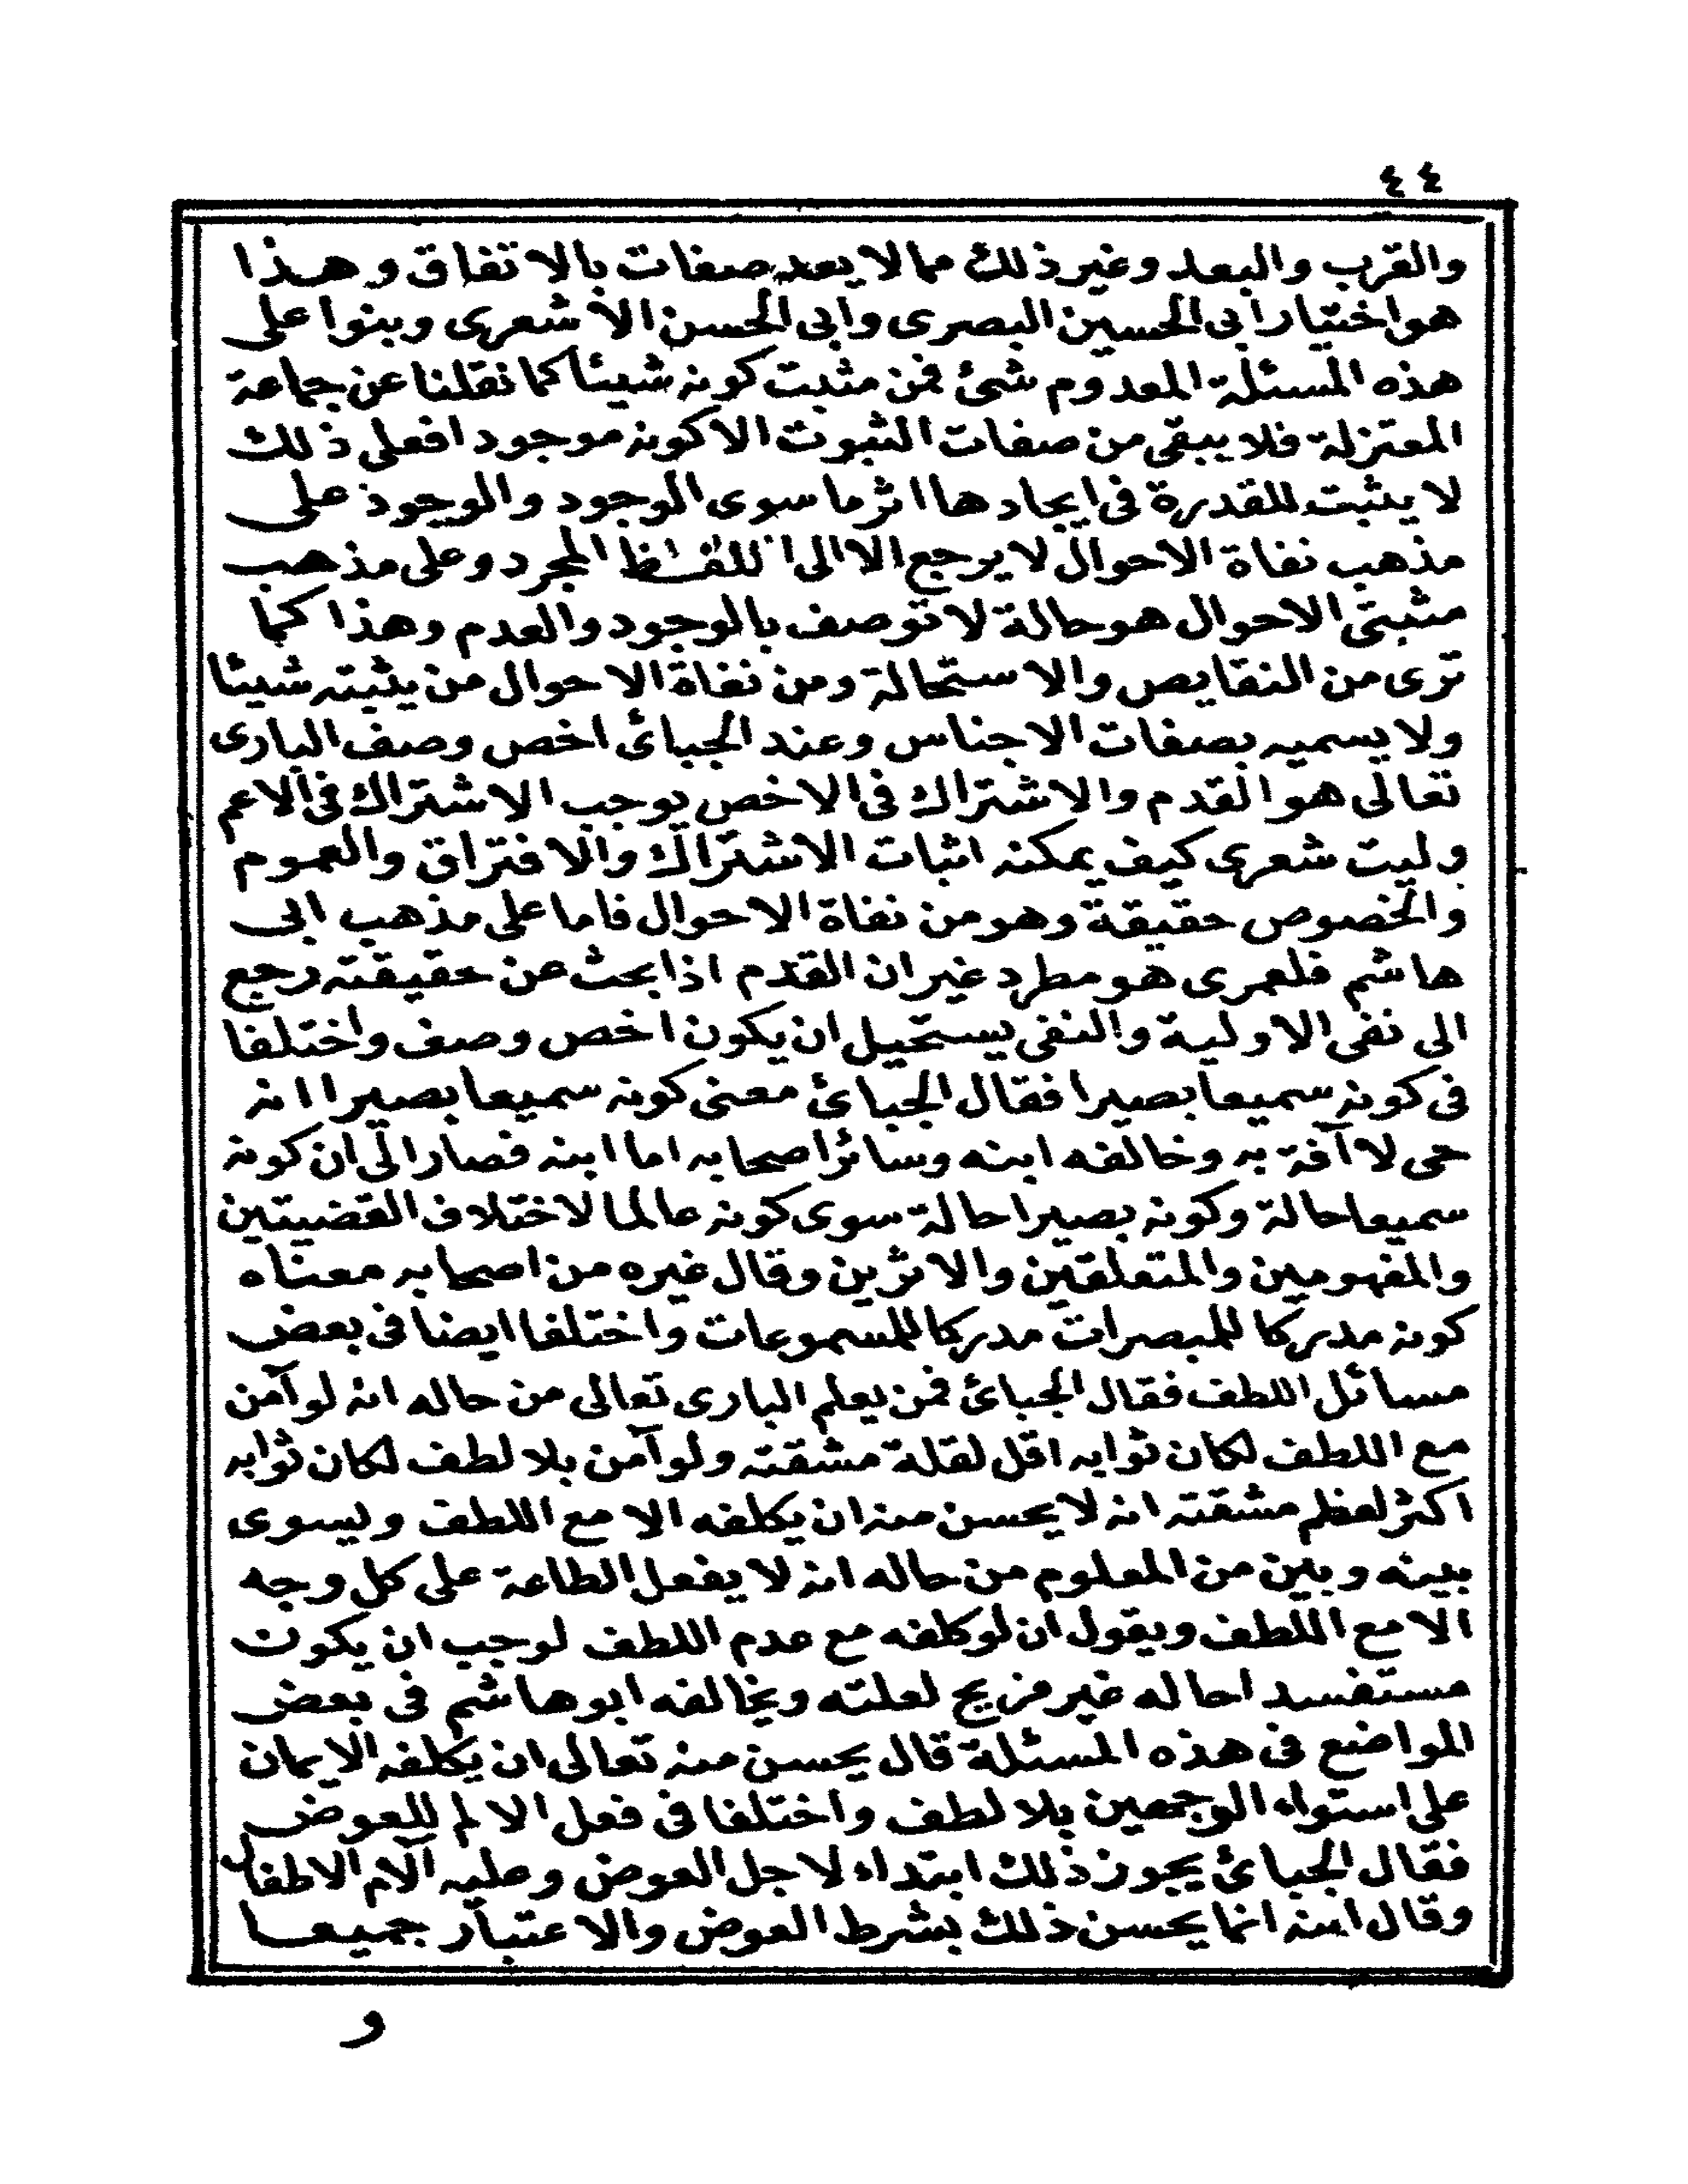 ٤٤
والقرب والبعد وغير ذلك مما لا يعد صفات بالاتفاق وهذا
هو اختيار ابى الحسين البصرى وابى الحسن الاشعرى وبنوا على
هذه المسئلة المعدوم شئ فمن مثبت كونه شيئا كما نقلنا عن جماعة
المعتزلة فلا يبقى من صفات الثبوت الا كونه موجودا فعلى ذلك
لا يثبت للقدرة فى ايجادها اثر ما سوى الوجود والوجوذ على
مذهب نفاة الاحوال لا يرجع الا الى اللفظ المجرد وعلى مذهب
مثبتى الاحوال هو حالة لا توصف بالوجود والعدم وهذا كما
ترى من النقايص والاستحالة ومن نفاة الاحوال من يثبته شيئا
ولا يسميه بصفات الاجناس وعند الجبائ اخص وصف البارى
تعالى هو القدم والاشتراك فى الاخص يوجب الاشتراك فى الاعم
وليت شعرى كيف يمكنه اثبات الاشتراك والافتراق والعموم
والخصوص حقيقة وهو من نفاة الاحوال فاما على مذهب ابى
هاشم فلعمرى هو مطرد غير ان القدم اذا بحث عن حقيقته رجع
الى نفى الاولية والنفى يستحيل ان يكون اخص وصف واختلفا
فى كونه سميعا بصيرا فقال الجبائ معنى كونه سميعا بصيرا انه
حى لا آفة به وخالفه ابنه وسائر اصحابه اما ابنه فصار الى ان كونه
سميعا حالة وكونه بصيرا حالة سوى كونه عالما لاختلاف القضيتين
والمفهومين والمتعلقين والاثرين وقال غيره من اصحابه معناه
كونه مدركا للمبصرات مدركا للمسموعات واختلفا ايضا فى بعض
مسائل اللطف فقال الجبائ فمن يعلم البارى تعالى من حاله انه لو آمن
مع اللطف لكان ثوابه اقل لقلة مشقته ولو آمن بلا لطف لكان ثوابه
اكثر لعظم مشقته انه لا يحسن منه ان يكلفه الا مع اللطف وليسوى
بينه وبين من المعلوم من حاله انه لا يفعل الطاعة على كل وجه
الا مع اللطف ويقول ان لو كلفه مع عدم اللطف لوجب ان يكون
مستفسدا حاله غير مزيح لعلته ويخالفه ابو هاشم فى بعض
المواضع فى هذه المسئلة قال يحسن منه تعالى ان يكلفه الايمان
على استواء الوجهين بلا لطف واختلفا فى فعل الالم للعوض
فقال الجبائ يجوز ذلك ابتداء لاجل العوض وعليه آلام الاطفال
وقال ابنه انما يحسن ذلك بشرط العوض والاعتبار جميعا
و